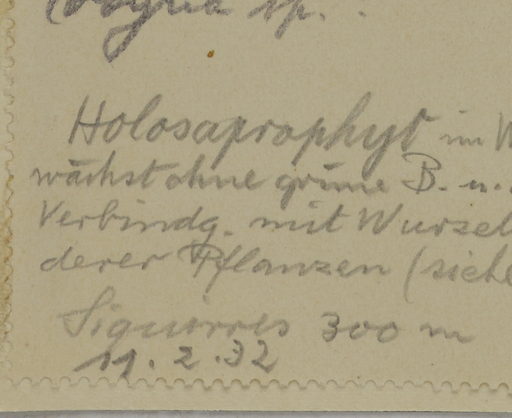 Voyria sp.
Holosaprophyt im W
wächst ohne grüne B. u.
Verbindg. mit Wurzel
derer Pflanzen (siehe
Siquirres 300 m
11. 2. 32